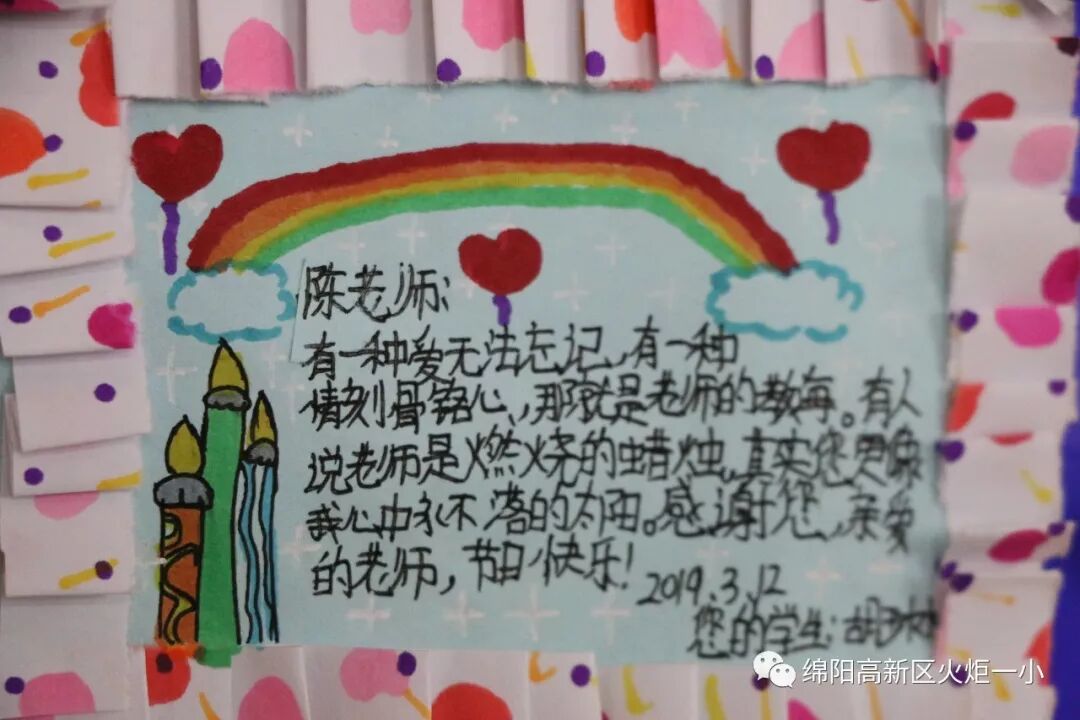 陈老师:
有一种爱无法忘记,有一种
情刻骨铭心,那就是老师的教每。有人
说老师是燃烧的蜡烛,真实您更像
我心中永不落的太阳。感谢您,亲爱
的老师,节日快乐!
2019.3.12
您的学生:胡
绵阳高新区火炬一小